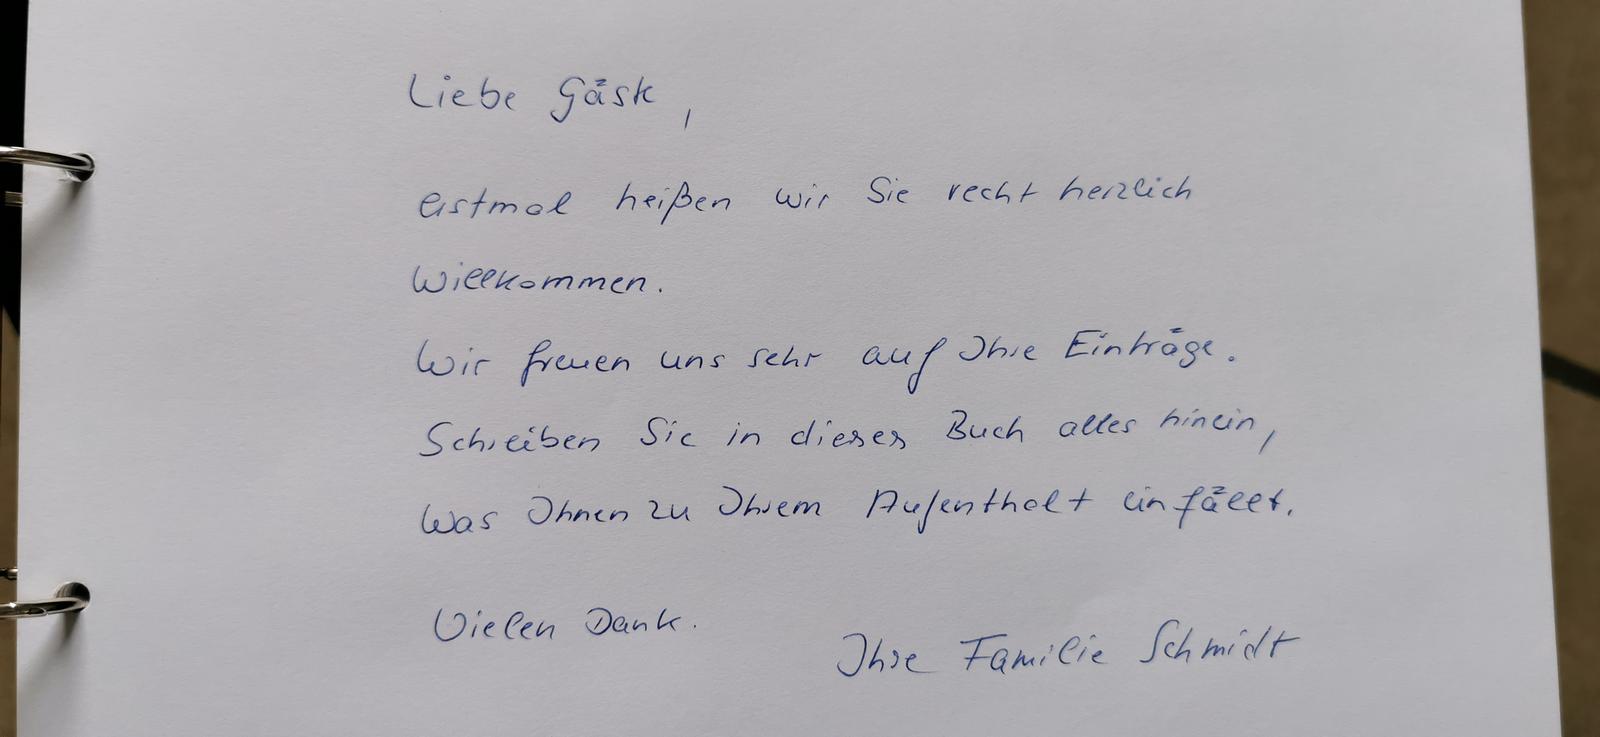 Liebe Gäste,
erstmal heißen wir Sie recht herzlich
Willkommen.
Wir freuen uns sehr auf Ihre Einträge.
Schreiben Sie in dieses Buch alles hinein,
was Ihnen zu Ihrem Aufenthalt einfällt.
Vielen Dank.
Ihre Familie Schmidt